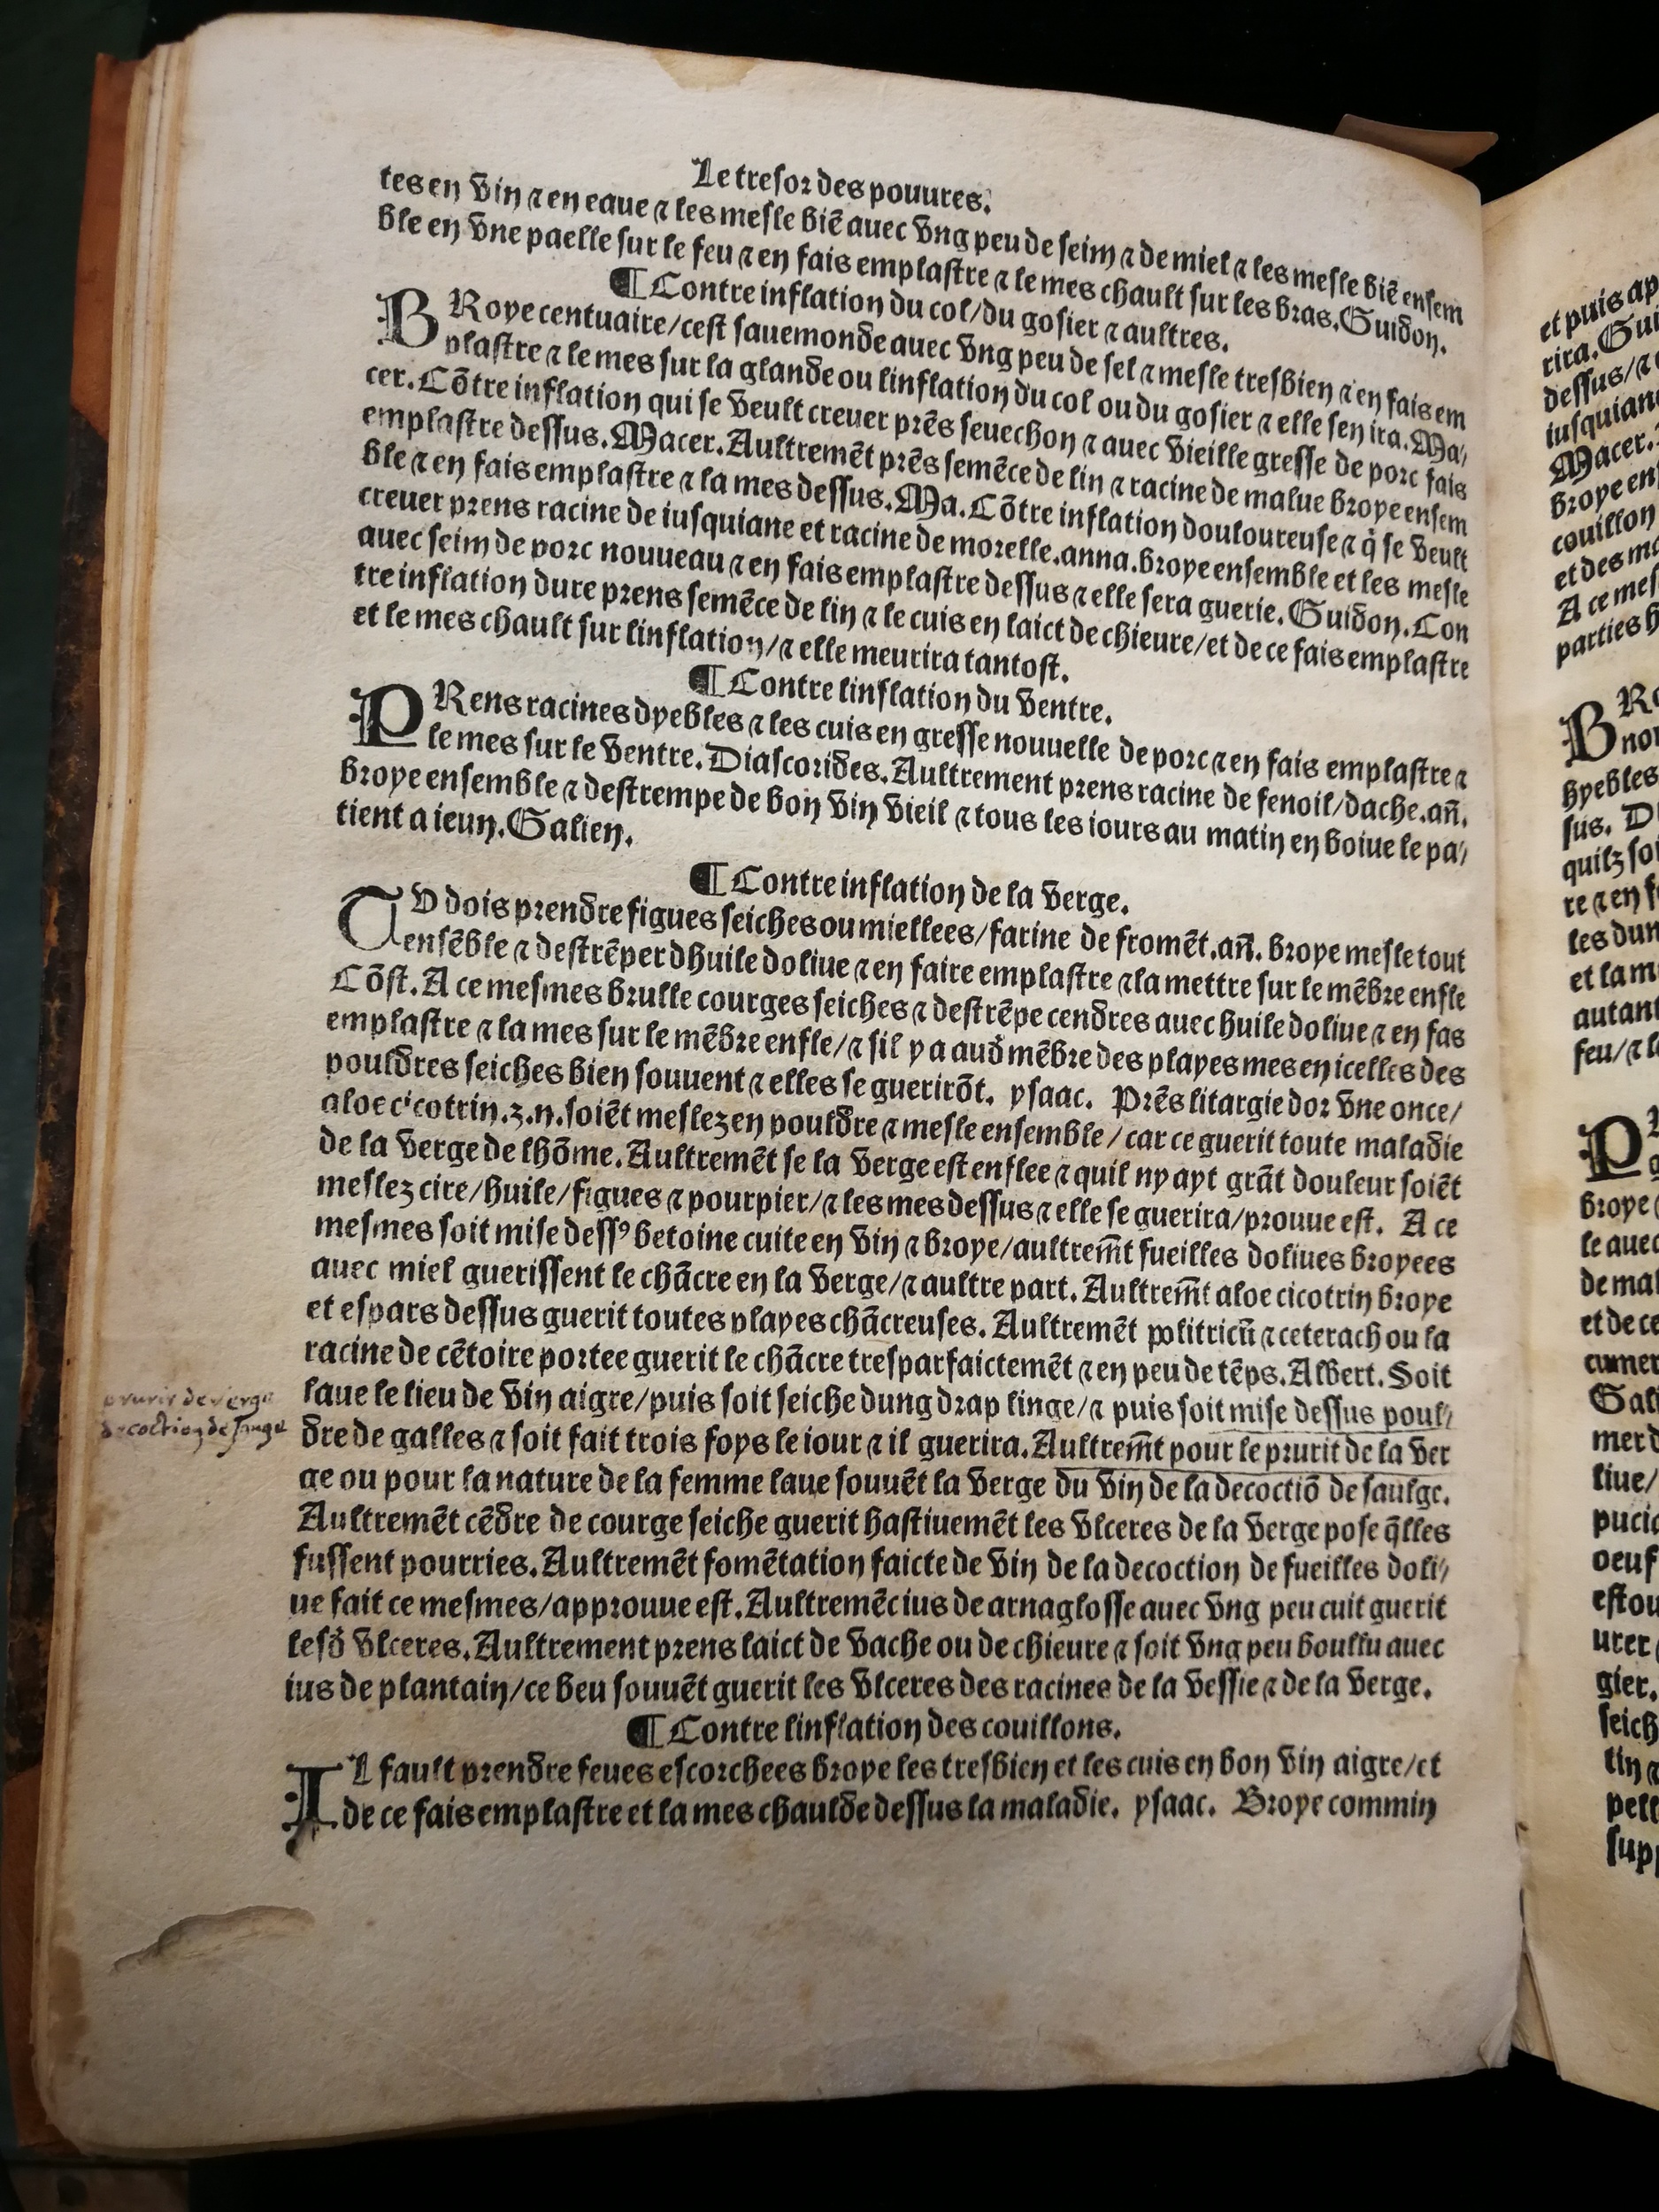 Le tresor des pouures.
tes en vin ⁊ en eaue ⁊ les mesle biē auec vng peu de seim ⁊ de miel ⁊ les mesle biē ensem
ble en vne paelle sur le feu ⁊ en fais emplastre ⁊ le mes chault sur les bras. Guidon.
¶ Contre inflation du col/du gosier ⁊ aultres.
BRoye centuaire/cest sauemonde auec vng peu de sel ⁊ mesle tresbien ⁊ en fais em
plastre ⁊ le mes sur la glande ou linflation du col ou du gosier ⁊ elle sen ira. Ma/
cer. Cōtre inflation qui se veult creuer prēs seuechon ⁊ auec vieille gresse de porc fais
emplastre dessus. Macer. Aultremēt prēs semēce de lin ⁊ racine de malue broye ensem
ble ⁊ en fais emplastre ⁊ la mes dessus. Ma. Cōtre inflation douloureuse ⁊ q̄ se veult
creuer prens racine de iusquiane et racine de morelle. anna. broye ensemble et les mesle
auec seim de porc nouueau ⁊ en fais emplastre dessus ⁊ elle sera guerie. Guidon. Con
tre inflation dure prens semēce de lin ⁊ le cuis en laict de chieure/et de ce fais emplastre
et le mes chault sur linflation/⁊ elle meurira tantost.
¶ Contre linflation du ventre.
PRens racines dyebles ⁊ les cuis en gresse nouuelle de porc ⁊ en fais emplastre ⁊
le mes sur le ventre. Diascorides. Aultrement prens racine de fenoil/dache. añ.
broye ensemble ⁊ destrempe de bon vin vieil ⁊ tous les iours au matin en boiue le pa/
tient a ieun. Galien.
¶ Contre inflation de la verge.
TV dois prendre figues seiches ou miellees/farine de fromēt. añ. broye mesle tout
ensēble ⁊ destrēper dhuile doliue ⁊ en faire emplastre ⁊ la mettre sur le mēbre enfle
Cōst. A ce mesmes brulle courges seiches ⁊ destrēpe cendres auec huile doliue ⁊ en fas
emplastre ⁊ la mes sur le mēbre enfle/⁊ sil y a aud̄ mēbre des playes mes en icelles des
pouldres seiches bien souuent ⁊ elles se guerirōt. ysaac. Prēs litargie dor vne once/
aloe cicotrin. ʒ. n. soiēt meslez en pouldre ⁊ mesle ensemble/ car ce guerit toute maladie
de la verge de lhōme. Aultremēt se la verge est enflee ⁊ quil ny ayt grāt douleur soiēt
meslez cire/huile/figues ⁊ pourpier/⁊ les mes dessus ⁊ elle se guerira/prouue est. A ce
mesmes soit mise dessꝰ betoine cuite en vin ⁊ broye/aultrem̄t fueilles doliues broyees
auec miel guerissent le chācre en la verge/⁊ aultre part. Aultrem̄t aloe cicotrin broye
et espars dessus guerit toutes playes chācreuses. Aultremēt politricū ⁊ ceterach ou la
racine de cētoire portee guerit le chācre tresparfaictemēt ⁊ en peu de tēps. Albert. Soit
laue le lieu de vin aigre/puis soit seiche dung drap linge/⁊ puis soit mise dessus poul/
dre de galles ⁊ soit fait trois foys le iour ⁊ il guerira. Aultrem̄t pour le prurit de la ver
ge ou pour la nature de la femme laue souuēt la verge du vin de la decoctiō de saulge.
Aultremēt cēdre de courge seiche guerit hastiuemēt les vlceres de la verge pose q̄lles
fussent pourries. Aultremēt fomētation faicte de vin de la decoction de fueilles doli/
ue fait ce mesmes/approuue est. Aultremēt ius de arnaglosse auec vng peu cuit guerit
lesd̄ vlceres. Aultrement prens laict de vache ou de chieure ⁊ soit vng peu boullu auec
ius de plantain/ce beu souuēt guerit les vlceres des racines de la vessie ⁊ de la verge.
¶ Contre linflation des couillons.
IL fault prendre feues escorchees broye les tresbien et les cuis en bon vin aigre/et
de ce fais emplastre et la mes chaulde dessus la maladie. ysaac. Broye commin
prurit de verge
decoction de sauge
et puis ap
rira. Gui
dessus/⁊
iusquian
Macer.
broye en
couillon
et des m
A ce mes
parties h
BR
no
hyebles
sus. D
quilz soi
re ⁊ en f
les dun
et la m
autant
feu/⁊ l
P
broye
le auec
de mal
et de ce
cumer
Gal
mer d
liue/
puci
oeuf
estou
urer
gier.
seich
lin ⁊
pell
supp